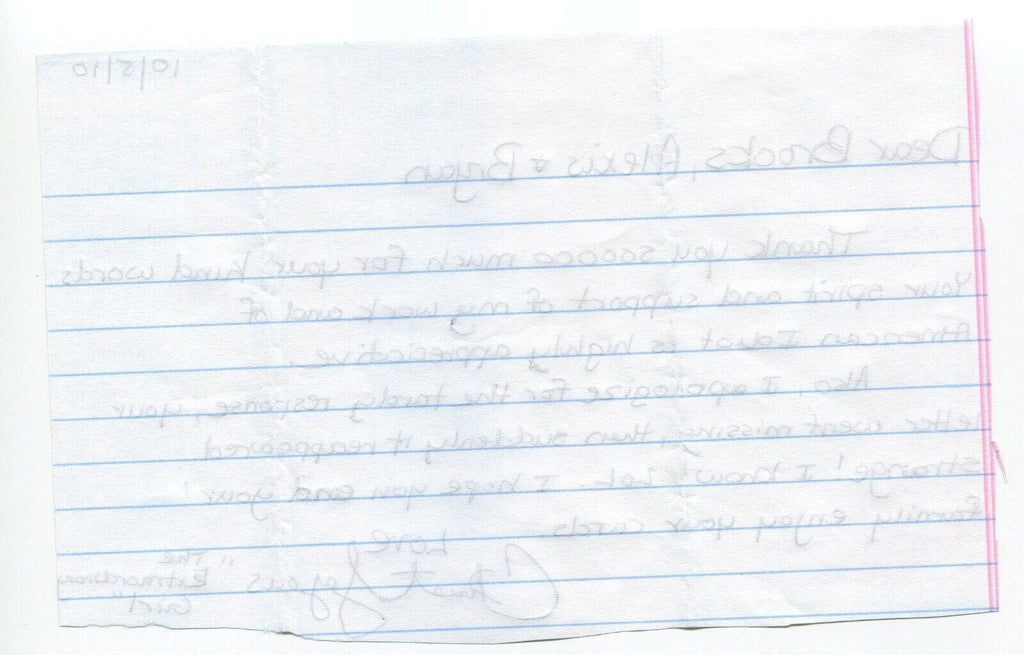 10/5/10
Dear Brooks, Alexis & Bryan
Thank you sooooo much for your kind words
Your spirit and support of my work and of
American Idiot is highly appreciative
Also, I apologize for the tardy response, your
letter went missing, then suddenly it reappeared
strange! I know! Lol. I hope you and your
family enjoy your cards.
Love,
"The
Extraordinary
Girl"